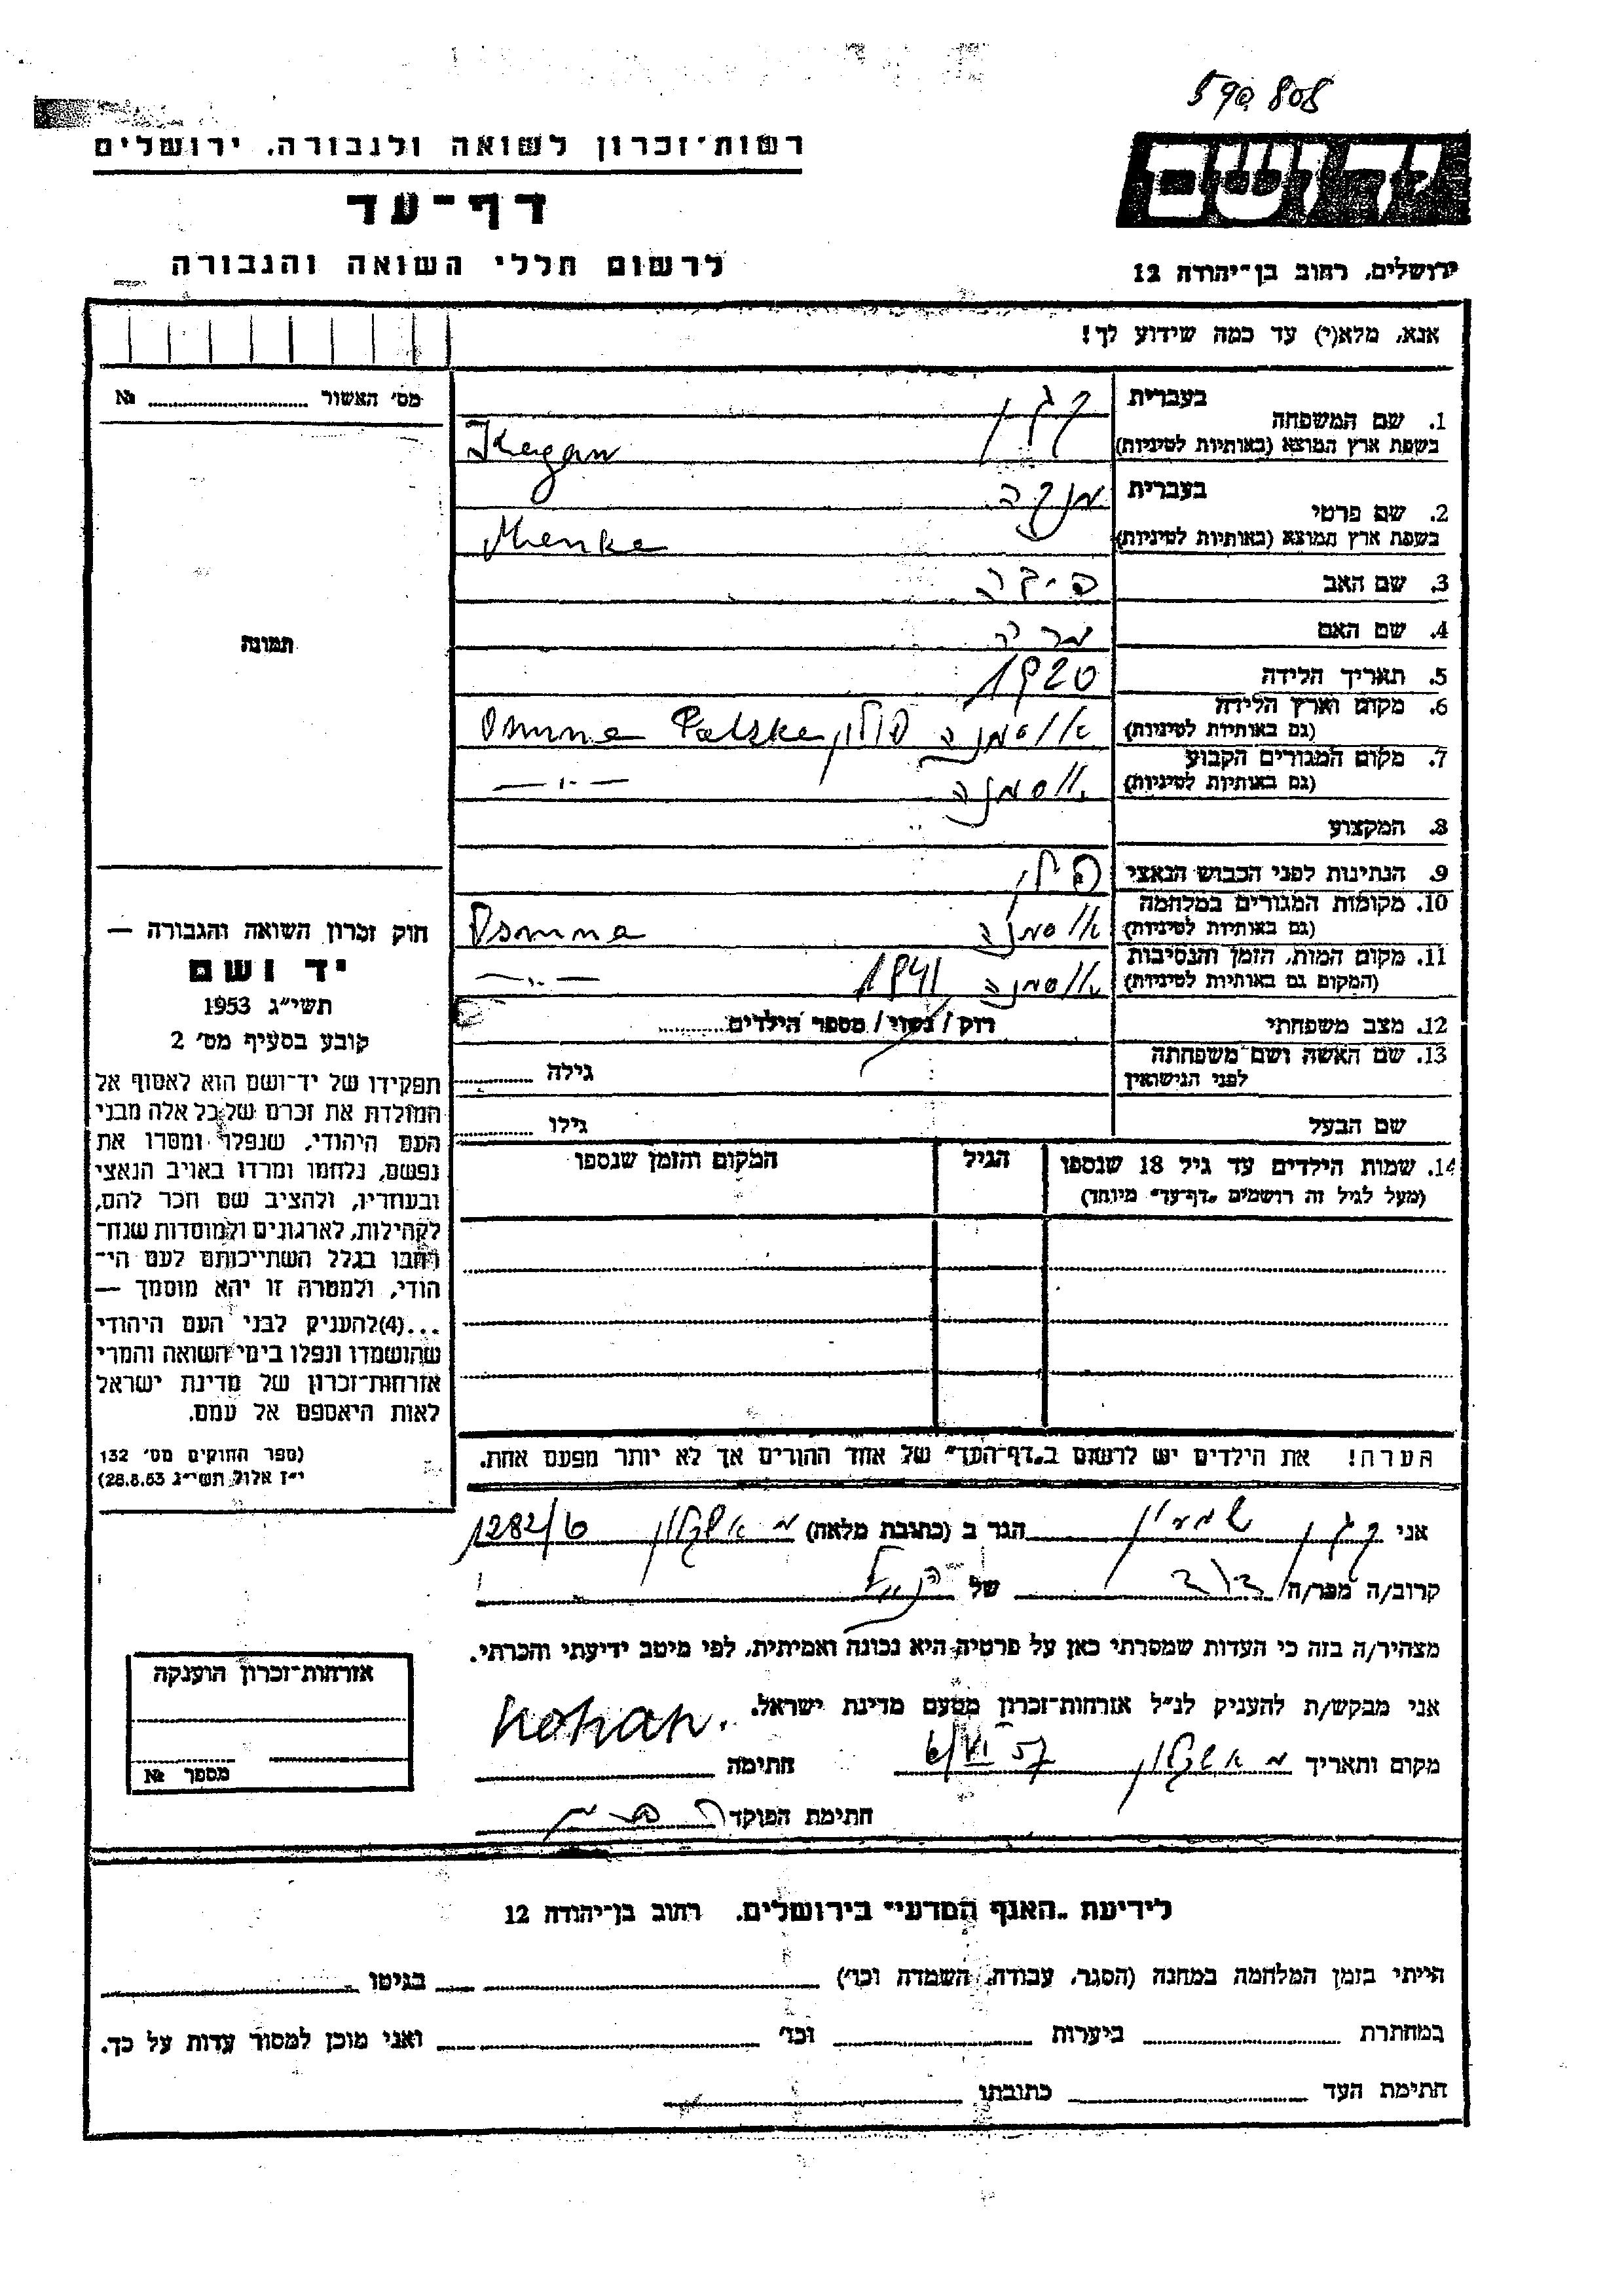 590808
רשות־זכרון לשואה ולגבורה, ירושלים
יד ושם
דף־עד
לרשום חללי השואה והגבורה
ירושלים, רחוב בן־יהודה 12
אנא, מלא(י) עד כמה שידוע לך!
מס׳ האשור № ........
בעברית קגן
1. שם המשפחה
בשפת ארץ המוצא (באותיות לטיניות) Kagan
בעברית מנקה
2. שם פרטי
בשפת ארץ המוצא (באותיות לטיניות) Menke
3. שם האב
תמונה
4. שם האם
5. תאריך הלידה 1920
6. מקום וארץ הלידה
(גם באותיות לטיניות) אוסמנה פולין Osmna Polska
7. מקום המגורים הקבוע
(גם באותיות לטיניות) אוסמנה —״—
8. המקצוע
9. הנתינות לפני הכבוש הנאצי פולין
10. מקומות המגורים במלחמה
(גם באותיות לטיניות) אוסמנה Osmna
11. מקום המות, הזמן והנסיבות
(המקום גם באותיות לטיניות) אוסמנה 1941 —״—
12. מצב משפחתי רוק / נשוי / מספר הילדים........
13. שם האשה ושם משפחתה
לפני הנישואין גילה ........
שם הבעל גילו ........
14. שמות הילדים עד גיל 18 שנספו הגיל המקום והזמן שנספו
(מעל לגיל זה רושמים „דף־עד״ מיוחד)
חוק זכרון השואה והגבורה —
יד ושם
תשי״ג 1953
קובע בסעיף מס׳ 2
תפקידו של יד־ושם הוא לאסוף אל
המולדת את זכרם של כל אלה מבני
העם היהודי, שנפלו ומסרו את
נפשם, נלחמו ומרדו באויב הנאצי
ובעוזריו, ולהציב שם וזכר להם,
לקהילות, לארגונים ולמוסדות שנח־
רבו בגלל השתייכותם לעם הי־
הודי, ולמטרה זו יהא מוסמך —
...(4)להעניק לבני העם היהודי
שהושמדו ונפלו בימי השואה והמרי
אזרחות־זכרון של מדינת ישראל
לאות היאספם אל עמם.
(ספר החוקים מס׳ 132
י״ז אלול תשי״ג 28.8.53)
הערה! את הילדים יש לרשום ב„דף־העד״ של אחד ההורים אך לא יותר מפעם אחת.
אני קגן שמעון הגר ב (כתובת מלאה) מ אשקלון 1282/6
קרוב/ה מכר/ה דוד של הנ״ל
מצהיר/ה בזה כי העדות שמסרתי כאן על פרטיה היא נכונה ואמיתית, לפי מיטב ידיעתי והכרתי.
אני מבקש/ת להעניק לנ״ל אזרחות־זכרון מטעם מדינת ישראל.
מקום ותאריך מ אשקלון 6/VI 57 חתימה
חתימת הפוקד
אזרחות־זכרון הוענקה
מספר №
לידיעת „האגף המדעי״ בירושלים, רחוב בן־יהודה 12
הייתי בזמן המלחמה במחנה (הסגר, עבודה, השמדה וכו׳) ........ בגיטו ........
במחתרת ........ ביערות ........ וכו׳ ........ ואני מוכן למסור עדות על כך.
חתימת העד ........ כתובתו ........